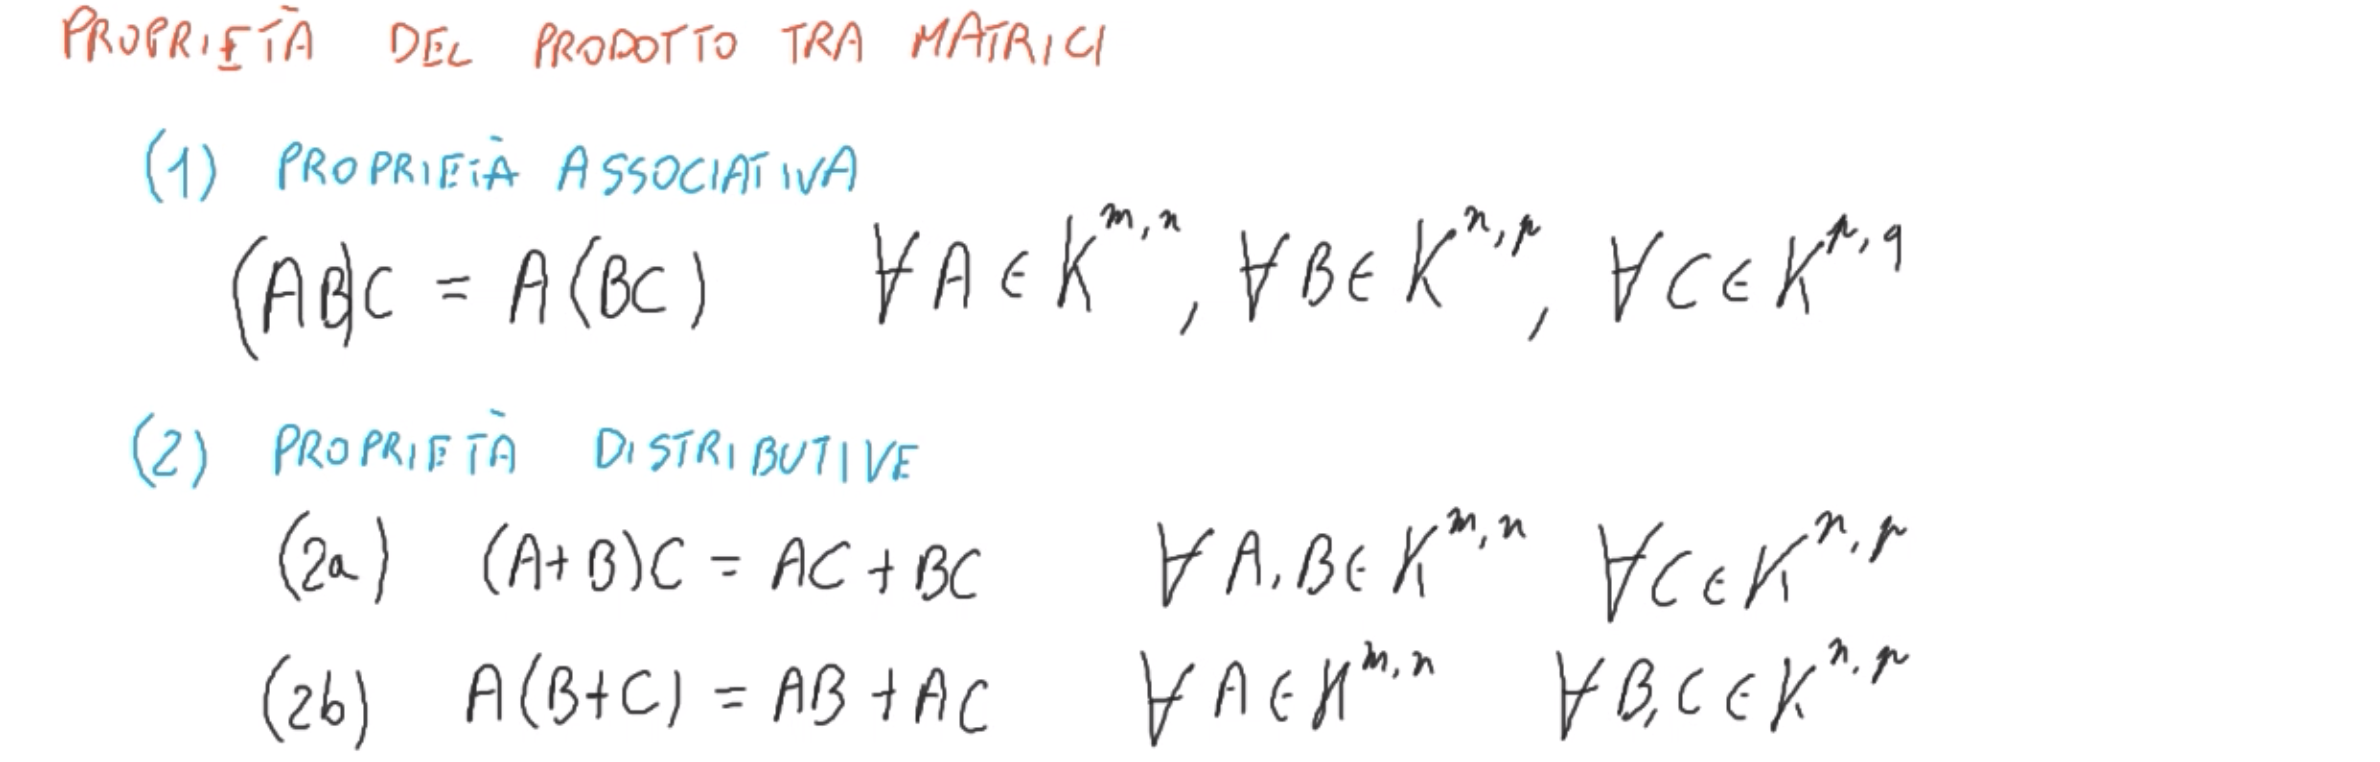 PROPRIETÀ DEL PRODOTTO TRA MATRICI
(1) PROPRIETÀ ASSOCIATIVA
(AB)C = A(BC) ∀A∈K^{m,n}, ∀B∈K^{n,p}, ∀C∈K^{p,q}
(2) PROPRIETÀ DISTRIBUTIVE
(2a) (A+B)C = AC+BC ∀A,B∈K^{m,n} ∀C∈K^{n,p}
(2b) A(B+C) = AB+AC ∀A∈K^{m,n} ∀B,C∈K^{n,p}